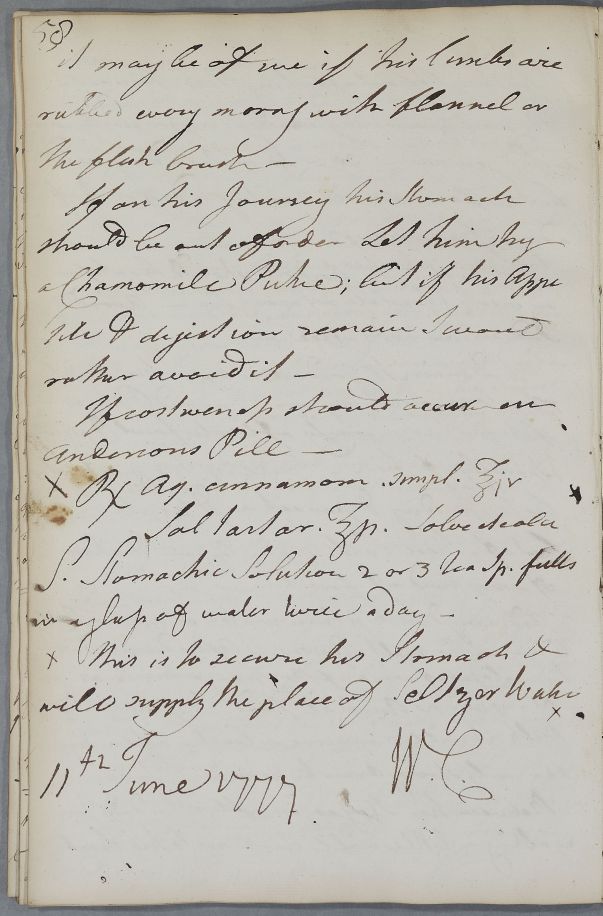 58
it may be of use if his limbs are
rubbed every morng with flannel or
the flesh brush —
If on his Journey his Stomach
should be out of order Let him try
a Chamomile Puke; but if his Appe
tite & digestion remain I would
rather avoid it —
If costiveness should occur an
Andersons Pill —
X ℞ Aq. cinnamom. simpl. ℥iv
Sal Tartar. ℥p. Solve & cola
S. Stomachic Solution 2 or 3 tea sp. fulls
in a glass of water twice a day —
x this is to secure his Stomach &
will supply the place of Seltzer Water
x
11th June 1777 W.C.